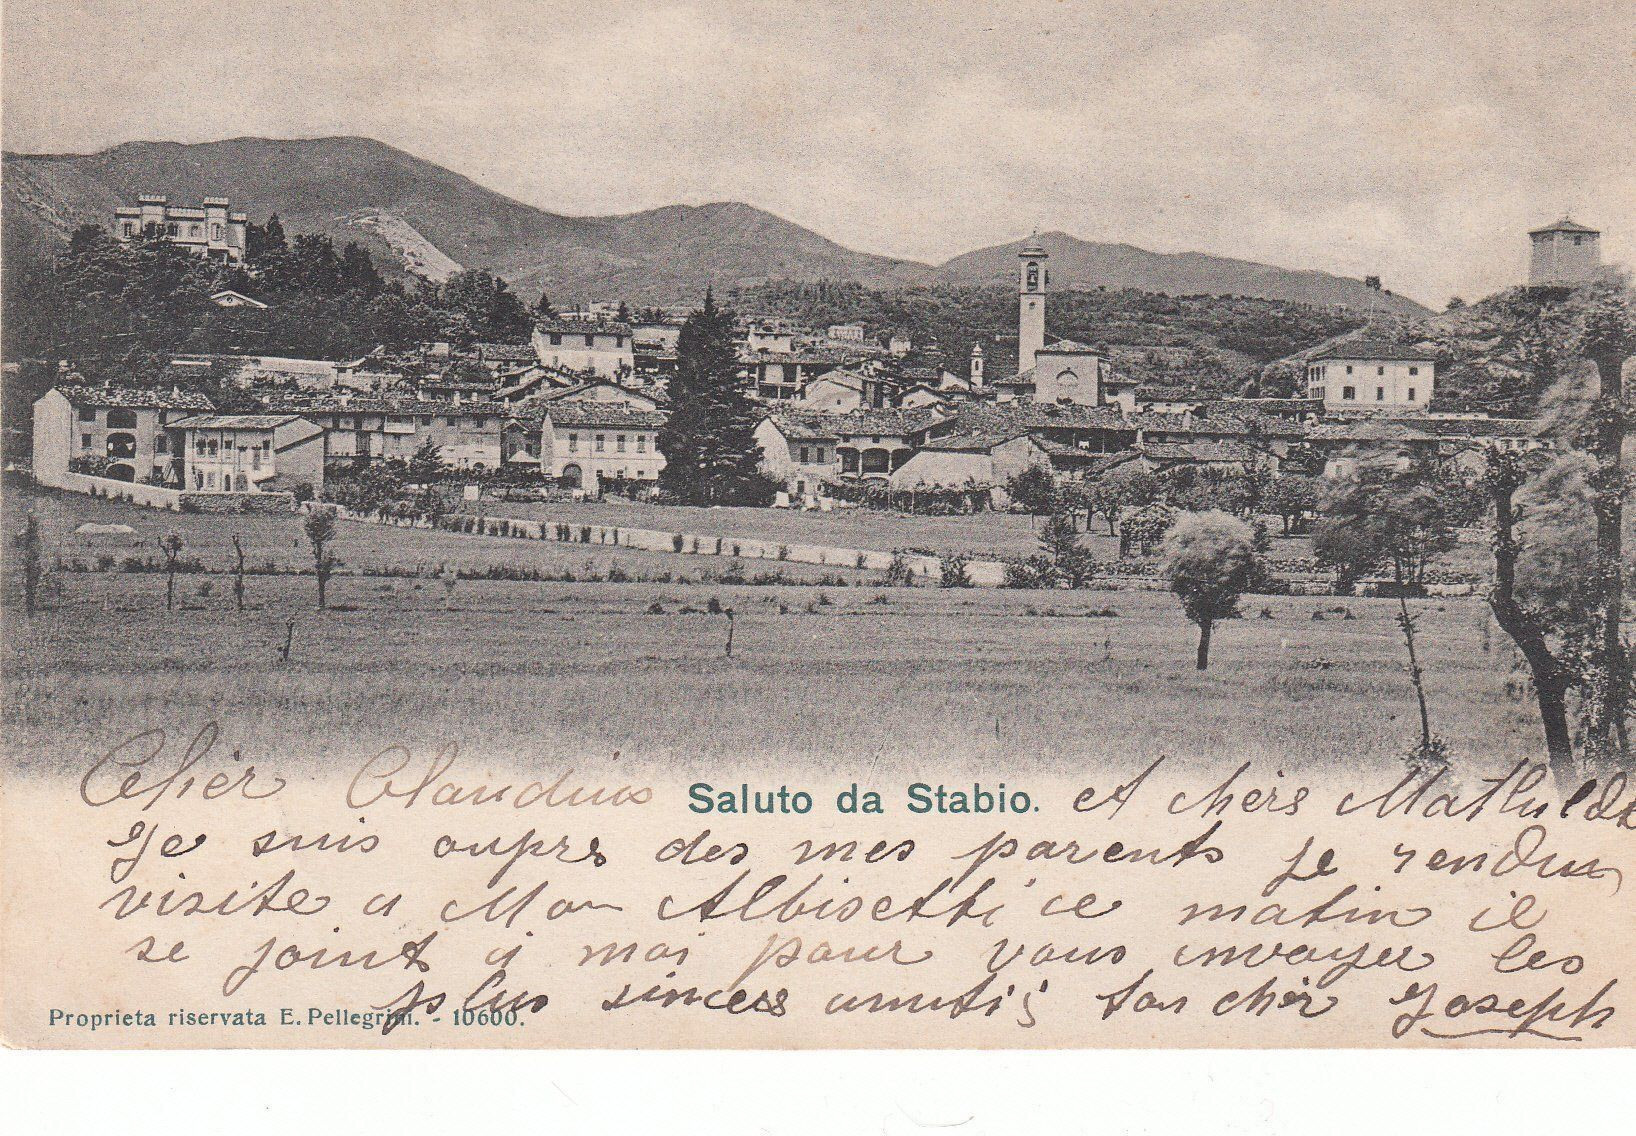 Cher Claudius Saluto da Stabio. et chers Mathulde
Je suis oupres des mes parents je rendu
visite a Mon Albisetti ce matin il
se joint a moi pour vous envoyer les
plus sinceres amitiés ton cher Joseph
Proprieta riservata E. Pellegrini. - 10600.